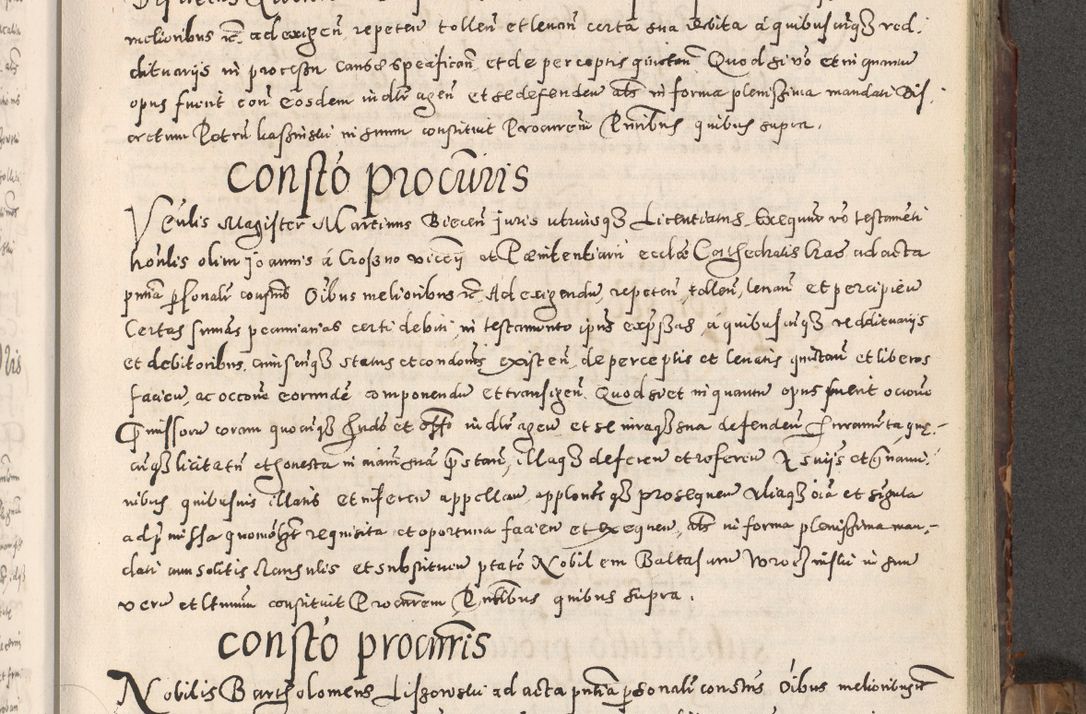 melioribus &c. ad exigen repeten tollen et levan certa sua debita a quibuscunq3 red-
dituariis in processu cause specifican et de perceptis quietan Quod si vo et in quantu
opus fuerit con eosdem iudlr agen et se defenden als in forma plenissima mandati Dis-
cretum Petru in suum constituit Procurem Pntibus quibus supra.
Consto procuris
Venlis Magister Martinus Biecen juris utriusq3 Licentiatus Exequu vo testamenti
honlis olim Joannis a Crosno vicey et Penitentiarii eccle Cathedralis ad acta
pntia psonalr constus Oibus melioribus &c. Ad exigendu, repeten, tollen, levan et percipien
Certas sumas pecuniarias certi debiti in testamento ipius expssas a quibuscunq3 reddituariis
et debitoribus, cuiuscunq3 status et condonis existen, de perceptis et levatis quietan et liberos
facien, ac occone eorunde componendu et transigen. Quod si et in quantu opus fuerit occone
pmissoru coram quocunq3 Judo et offo iudlr agen et se iuraq3 sua defenden Juramta que-
cunq3 licita tn et honesta in aiam sua pstan, illaq3 defcien et referen
nibus quibusvis illatis et inferen appellan, applontsq3 prosequen aliaq3 oia et singula
ad pmissa quomolbt requisita et oportuna facien et exequen, als in forma plenissima man-
dati cum solitis clausulis et substituen ptato Nobilem Baltasarem in suu
veru et ltmum constituit Procurem Pntibus quibus supra.
Consto procuris
Nobilis Bartholomeus ad acta pntia psonalr constus Oibus melioribus &c